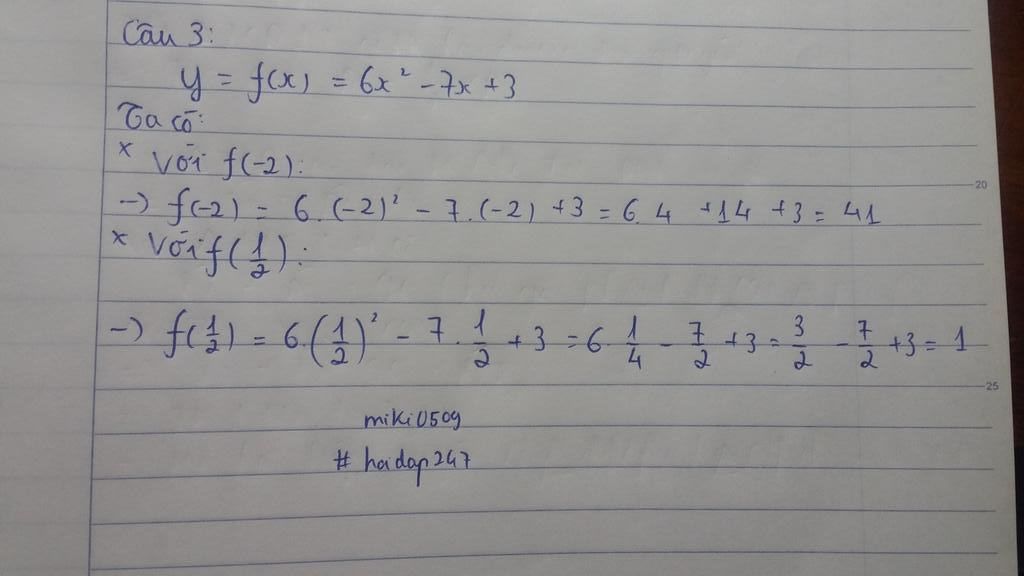 Câu 3:
y = f(x) = 6x² - 7x + 3
Ta có:
× Với f(-2):
→ f(-2) = 6.(-2)² - 7.(-2) + 3 = 6.4 + 14 + 3 = 41
× Với f(1/2):
→ f(1/2) = 6.(1/2)² - 7.1/2 + 3 = 6.1/4 - 7/2 + 3 = 3/2 - 7/2 + 3 = 1
miki0509
# hoidap247
20
25